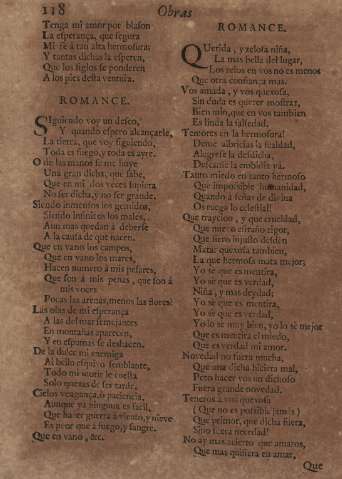 118 Obras
Tenga mi amor por blason
La esperança, que segura
Mi fè à tan alta hermosura:
Y tantas dichas la espera,
Que los siglos se ponderen
A los pies desta ventura.
ROMANCE.
SIguiendo voy un deseo,
Y quando espero alcançarle,
La tierra, que voy siguiendo,
Toda es fuego, y toda es ayre.
O de las manos se me huye
Una gran dicha, que sabe,
Que en mi dos veces supiera
No ser dicha, y no ser grande.
Siendo inmensos los gemidos,
Siendo infinitos los males,
Aun mas quedan à deberse
A la causa de que nacen.
Que en vano los campos,
Que en vano los mares,
Hacen numero à mis pesares,
Que son à mis penas, que son à
mis voces
Pocas las arenas, menos las flores?
Las olas de mi esperança
A las del mar semejantes
En montañas aparecen,
Y en espumas se deshacen.
De la dulce mi enemiga
Al bello esquivo semblante,
Todo mi morir le cuesta
Solo quexas de ser tarde,
Cielos vengança, ò paciencia,
Aunque ya ninguna es facil,
Que hacer guerra à viento, y nieve
Es peor que à fuego, y sangre.
Que en vano, &c.
ROMANCE.
QUerida, y zelosa niña,
La mas bella del lugar,
Los zelos en vos no es menos
Que otra confiança mas.
Vos amada, y vos quexosa,
Sin duda es querer mostrar,
Bien mio, que en vos tambien
Es linda la falsedad.
Temores en la hermosura!
Deme albricias la fealdad,
Alegrese la desdicha,
Descanse la embidia ya.
Tanto miedo en tanto hermoso
Que impossible humanidad,
Quando à señas de divina
Os ruego lo celestial!
Que traycion, y que crueldad,
Que nuevo estraño rigor,
Que fiero injusto desden
Matar quexosa tambien,
La que hermosa mata mejor;
Yo se que es mentira,
Yo se que es verdad,
Niña, y mas deydad;
Yo se que es mentira,
Yo se que es verdad,
Yo lo se muy bien, yo lo se mejor
Que es mentira el miedo,
Que es verdad mi amor.
Novedad no fuera mucha,
Que una dicha hiciera mal,
Pero hacer vos un dichoso
Fuera grande novedad.
Teneros à vos quexosa
(Que no es possible jamàs)
Que primor, que dicha fuera,
Sino fuera necedad!
No ay mas acierto que amaros,
Que mas quisiera en amar,
Que